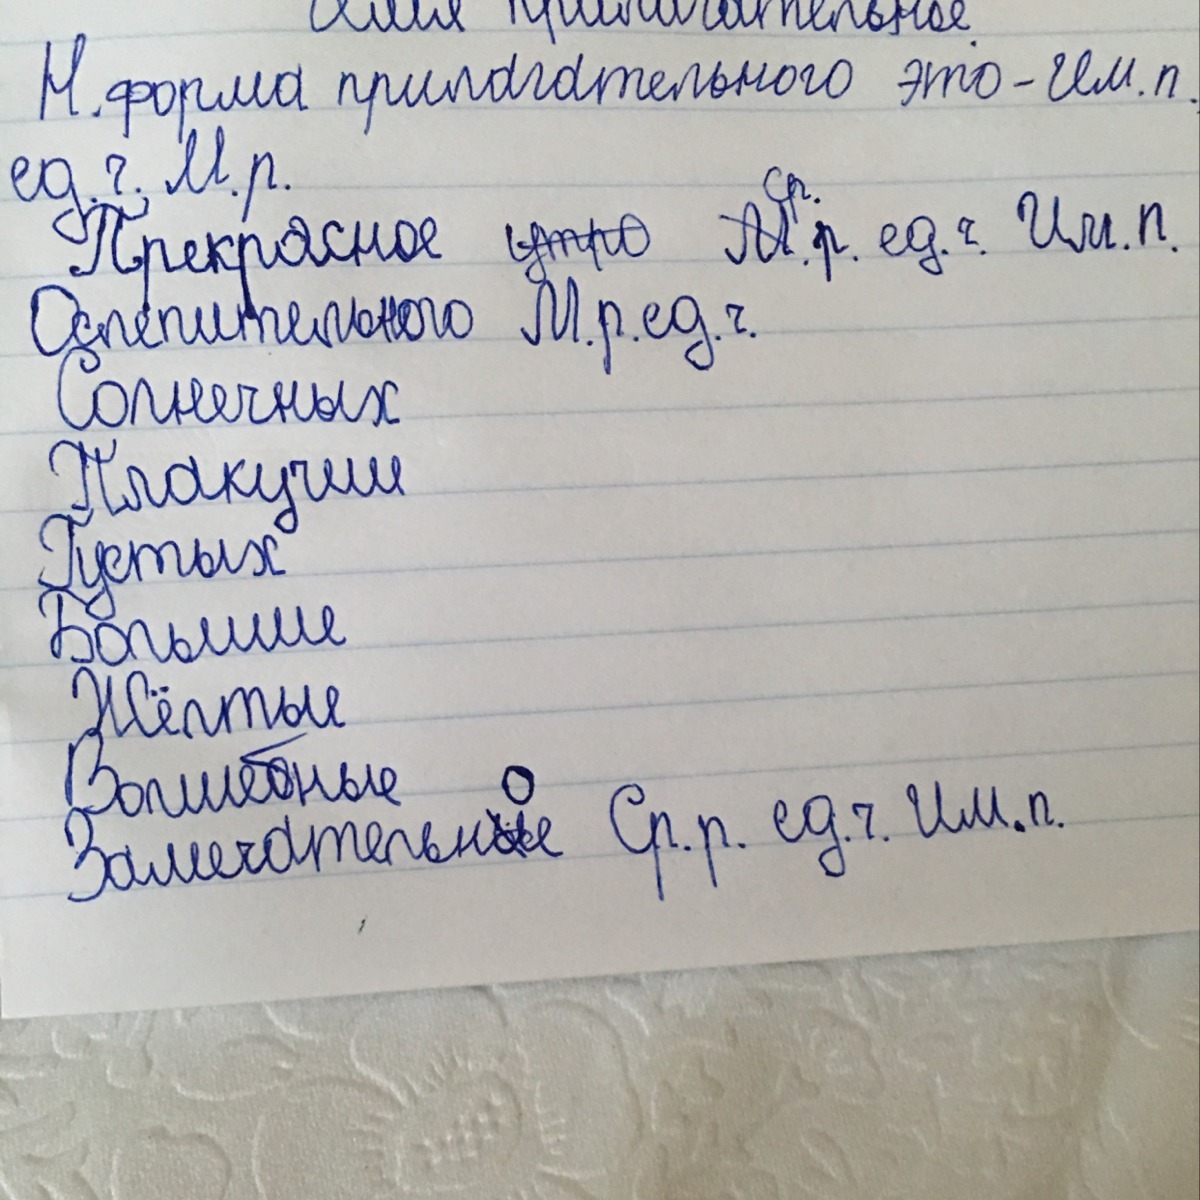 Имя прилагательное
Н. форма прилагательного это - Им. п.
ед. ч. М. р.
Прекрасное утро М. Ср. р. ед. ч. Им. п.
Ослепительного М. р. ед. ч.
Солнечных
Плакучии
Густых
Большие
Жёлтые
Волшебные
Замечательное Ср. р. ед. ч. Им. п.